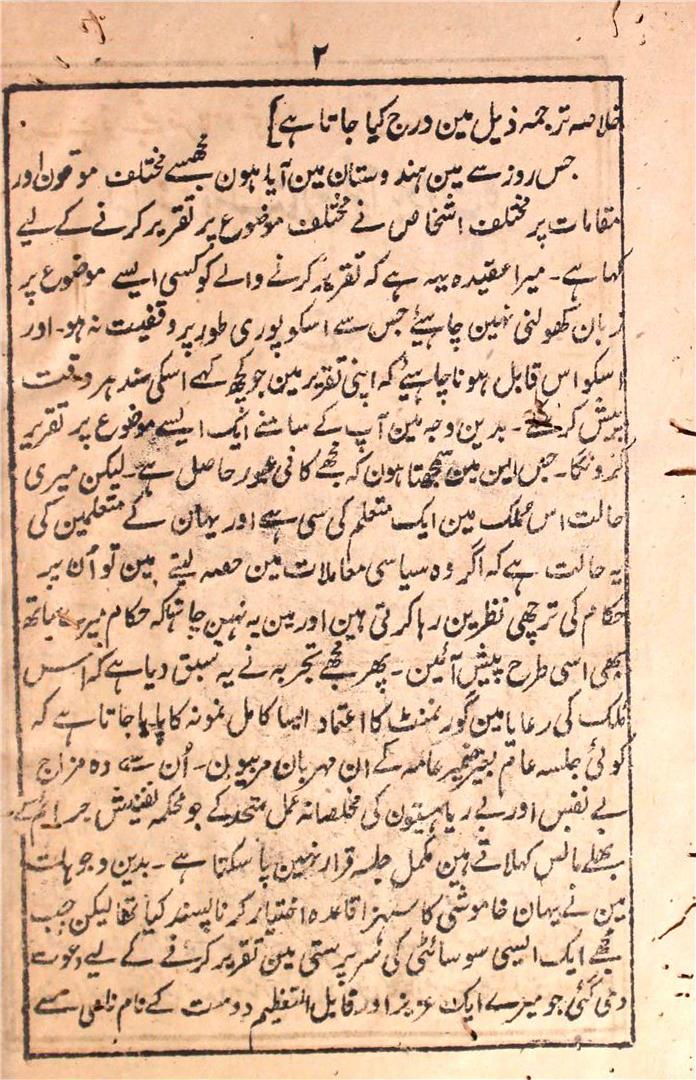 ۲
خلاصہ ترجمہ ذیل مین درج کیا جاتا ہے]
جس روز سے مین ہندوستان مین آیا ہون مجھسے مختلف موقعون اور
مقامات پر مختلف اشخاص نے مختلف موضوع پر تقریر کرنے کے لیے
کہا ہے۔ میرا عقیدہ یہہ ہے کہ تقریر کرنے والے کو کسی ایسے موضوع پر
زبان کھولنی نہین چاہیئے جس سے اسکو پوری طور پر وقفیت نہ ہو۔ اور
اسکو اس قابل ہونا چاہیے کہ اپنی تقریر مین جو کچھ کہے اسکی سند ہر وقت
پیش کر سکے۔ بدین وجہ مین آپ کے سامنے ایک ایسے موضوع پر تقریر
کرونگا۔ جس مین مین سمجھتا ہون کہ مجھے کافی عبور حاصل ہے۔ لیکن میری
حالت اس ملک مین ایک متعلم کی سی ہے اور یہان کے متعلمین کی
یہ حالت ہے کہ اگر وہ سیاسی معاملات مین حصہ لیتے ہین تو اُن پر
حکام کی ترچھی نظرین رہا کرتی ہین اور مین یہ نہین چاہتا کہ حکام میرے ساتھ
بھی اسی طرح پیش آئین۔ پھر مجھے تجربہ نے یہ سبق دیا ہے کہ اس
ملک کی رعایا مین گورنمنٹ کا اعتماد ایسا کامل نمونہ کا پایا جاتا ہے کہ
کوئی جلسہ عام بغیر خیر عامہ کے ان مہربان مربیون۔ اُن سادہ مزاج
بے نفس اور بے ریا ہستیون کی مخلصانہ عمل متحد کے جو محکمہ تفتیش جرائم کے
بھلے مانس کہلاتے ہین مکمل جلسہ قرار نہین پا سکتا ہے۔ بدین وجوہات
مین نے یہان خاموشی کا سنہرا قاعدہ اختیار کرنا پسند کیا تھا لیکن جب
مجھے ایک ایسی سوسائٹی کی سرپرستی مین تقریر کرنے کے لیے دعوت
دی گئی جو میرے ایک عزیز اور قابل التعظیم دوست کے نام نامی سے